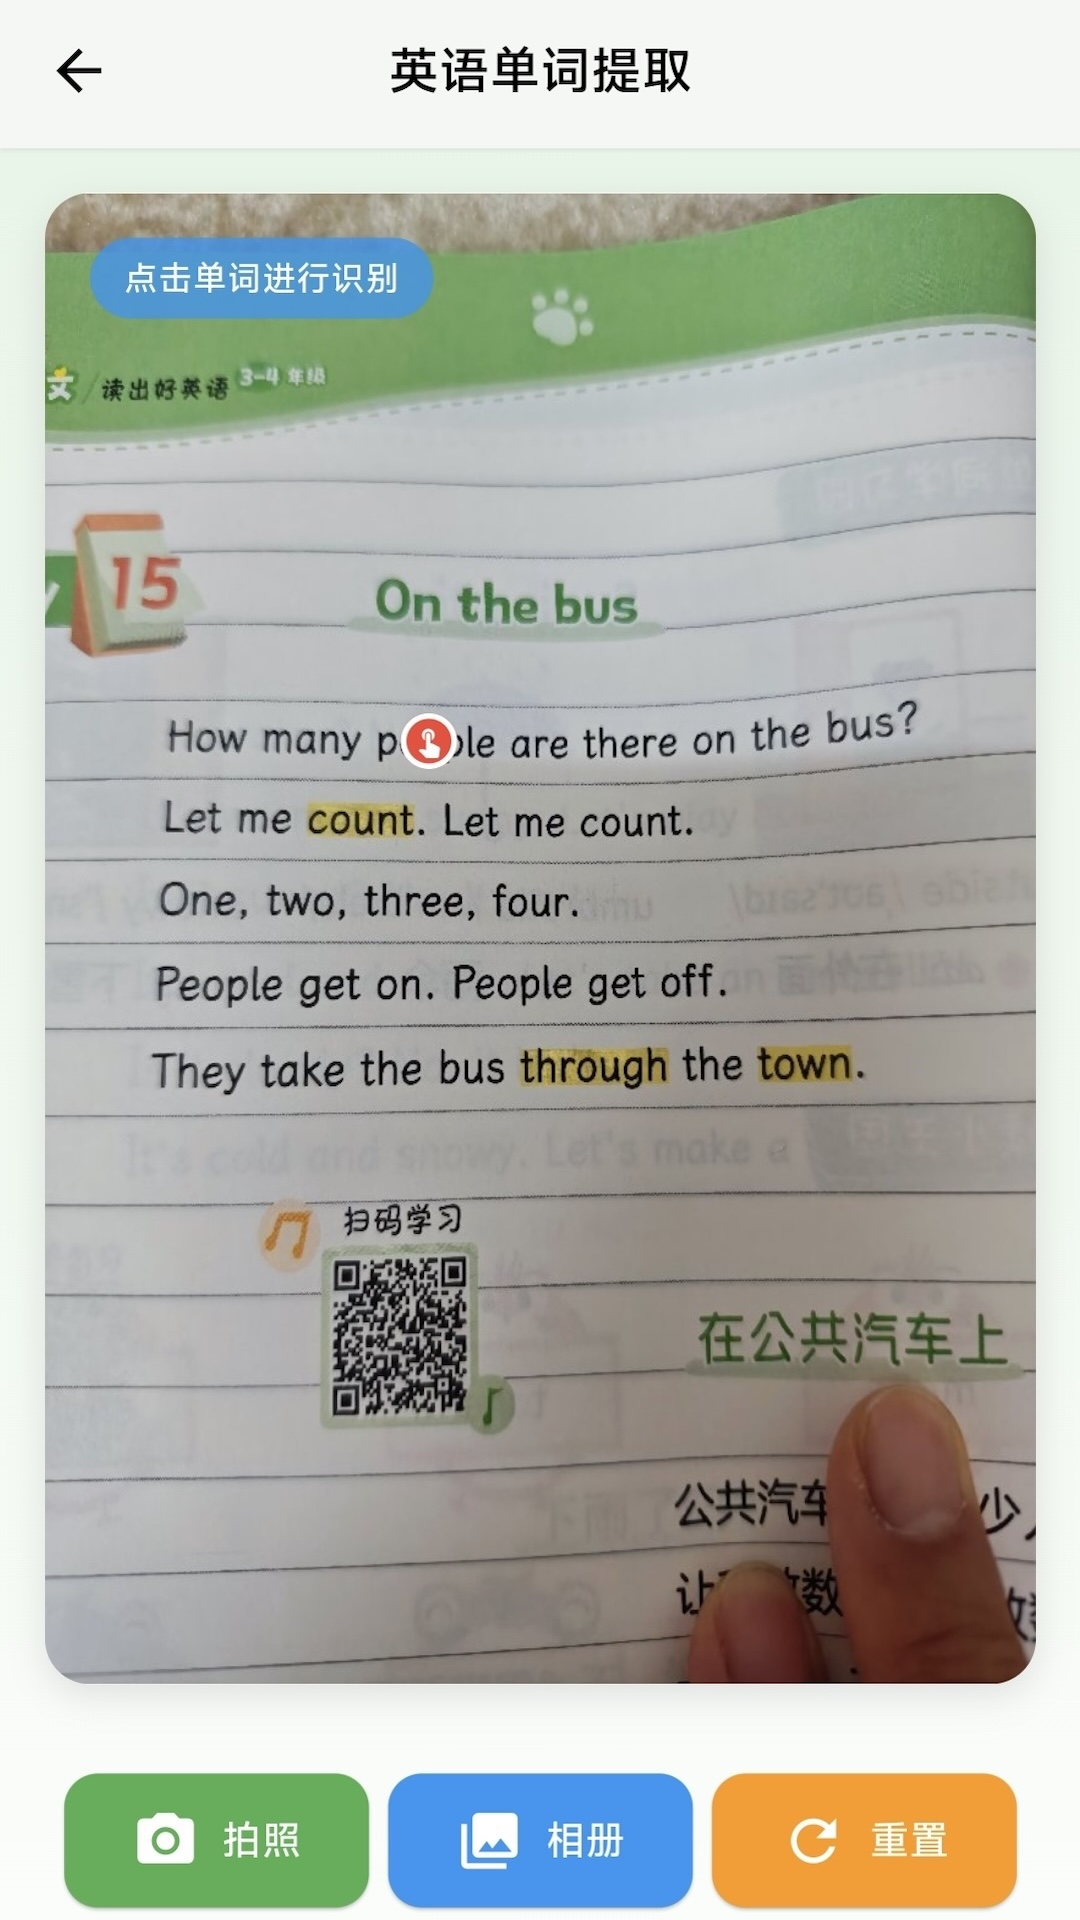 英语单词提取
点击单词进行识别
文/读出好英语 3-4 年级
15
On the bus
How many p ple are there on the bus?
Let me count. Let me count.
One, two, three, four.
People get on. People get off.
They take the bus through the town.
It's cold and snowy. Let's make a
扫码学习
在公共汽车上
公共汽车 少
让 数
拍照
相册
重置